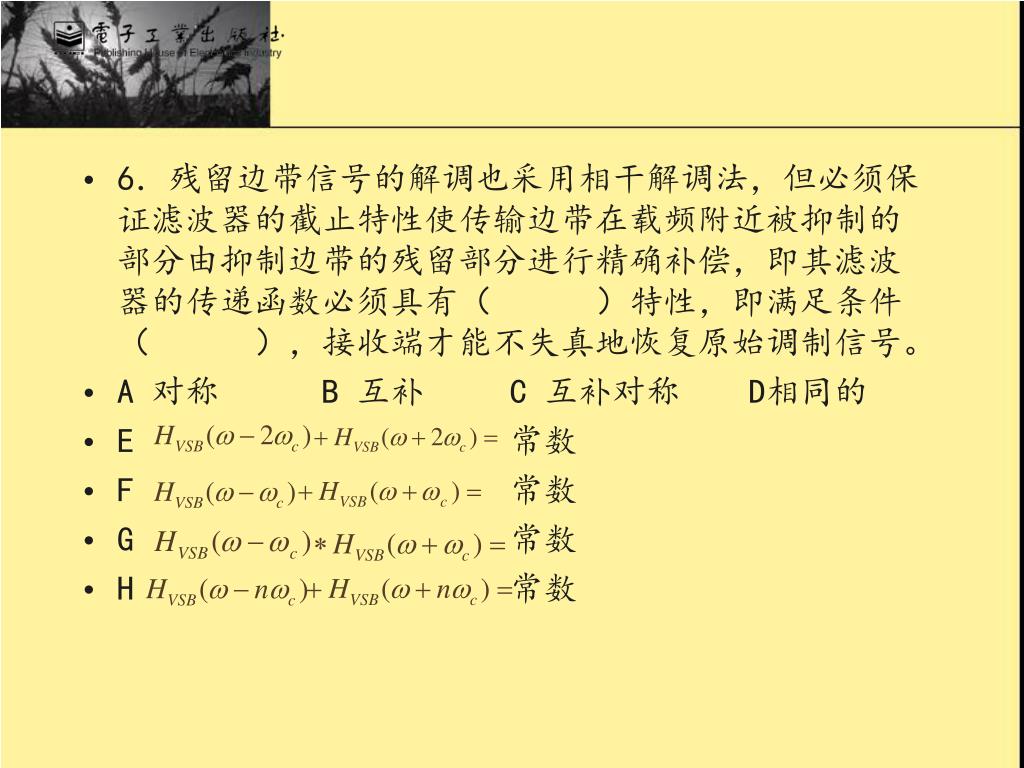 電子工業出版社
Publishing House of Electronics Industry
• 6. 残留边带信号的解调也采用相干解调法，但必须保
证滤波器的截止特性使传输边带在载频附近被抑制的
部分由抑制边带的残留部分进行精确补偿，即其滤波
器的传递函数必须具有（      ）特性，即满足条件
（      ），接收端才能不失真地恢复原始调制信号。
• A 对称      B 互补     C 互补对称    D相同的
• E H_VSB(ω−2ω_c)+H_VSB(ω+2ω_c)= 常数
• F H_VSB(ω−ω_c)+H_VSB(ω+ω_c)= 常数
• G H_VSB(ω−ω_c)*H_VSB(ω+ω_c)=常数
• H H_VSB(ω−nω_c)+H_VSB(ω+nω_c)=常数